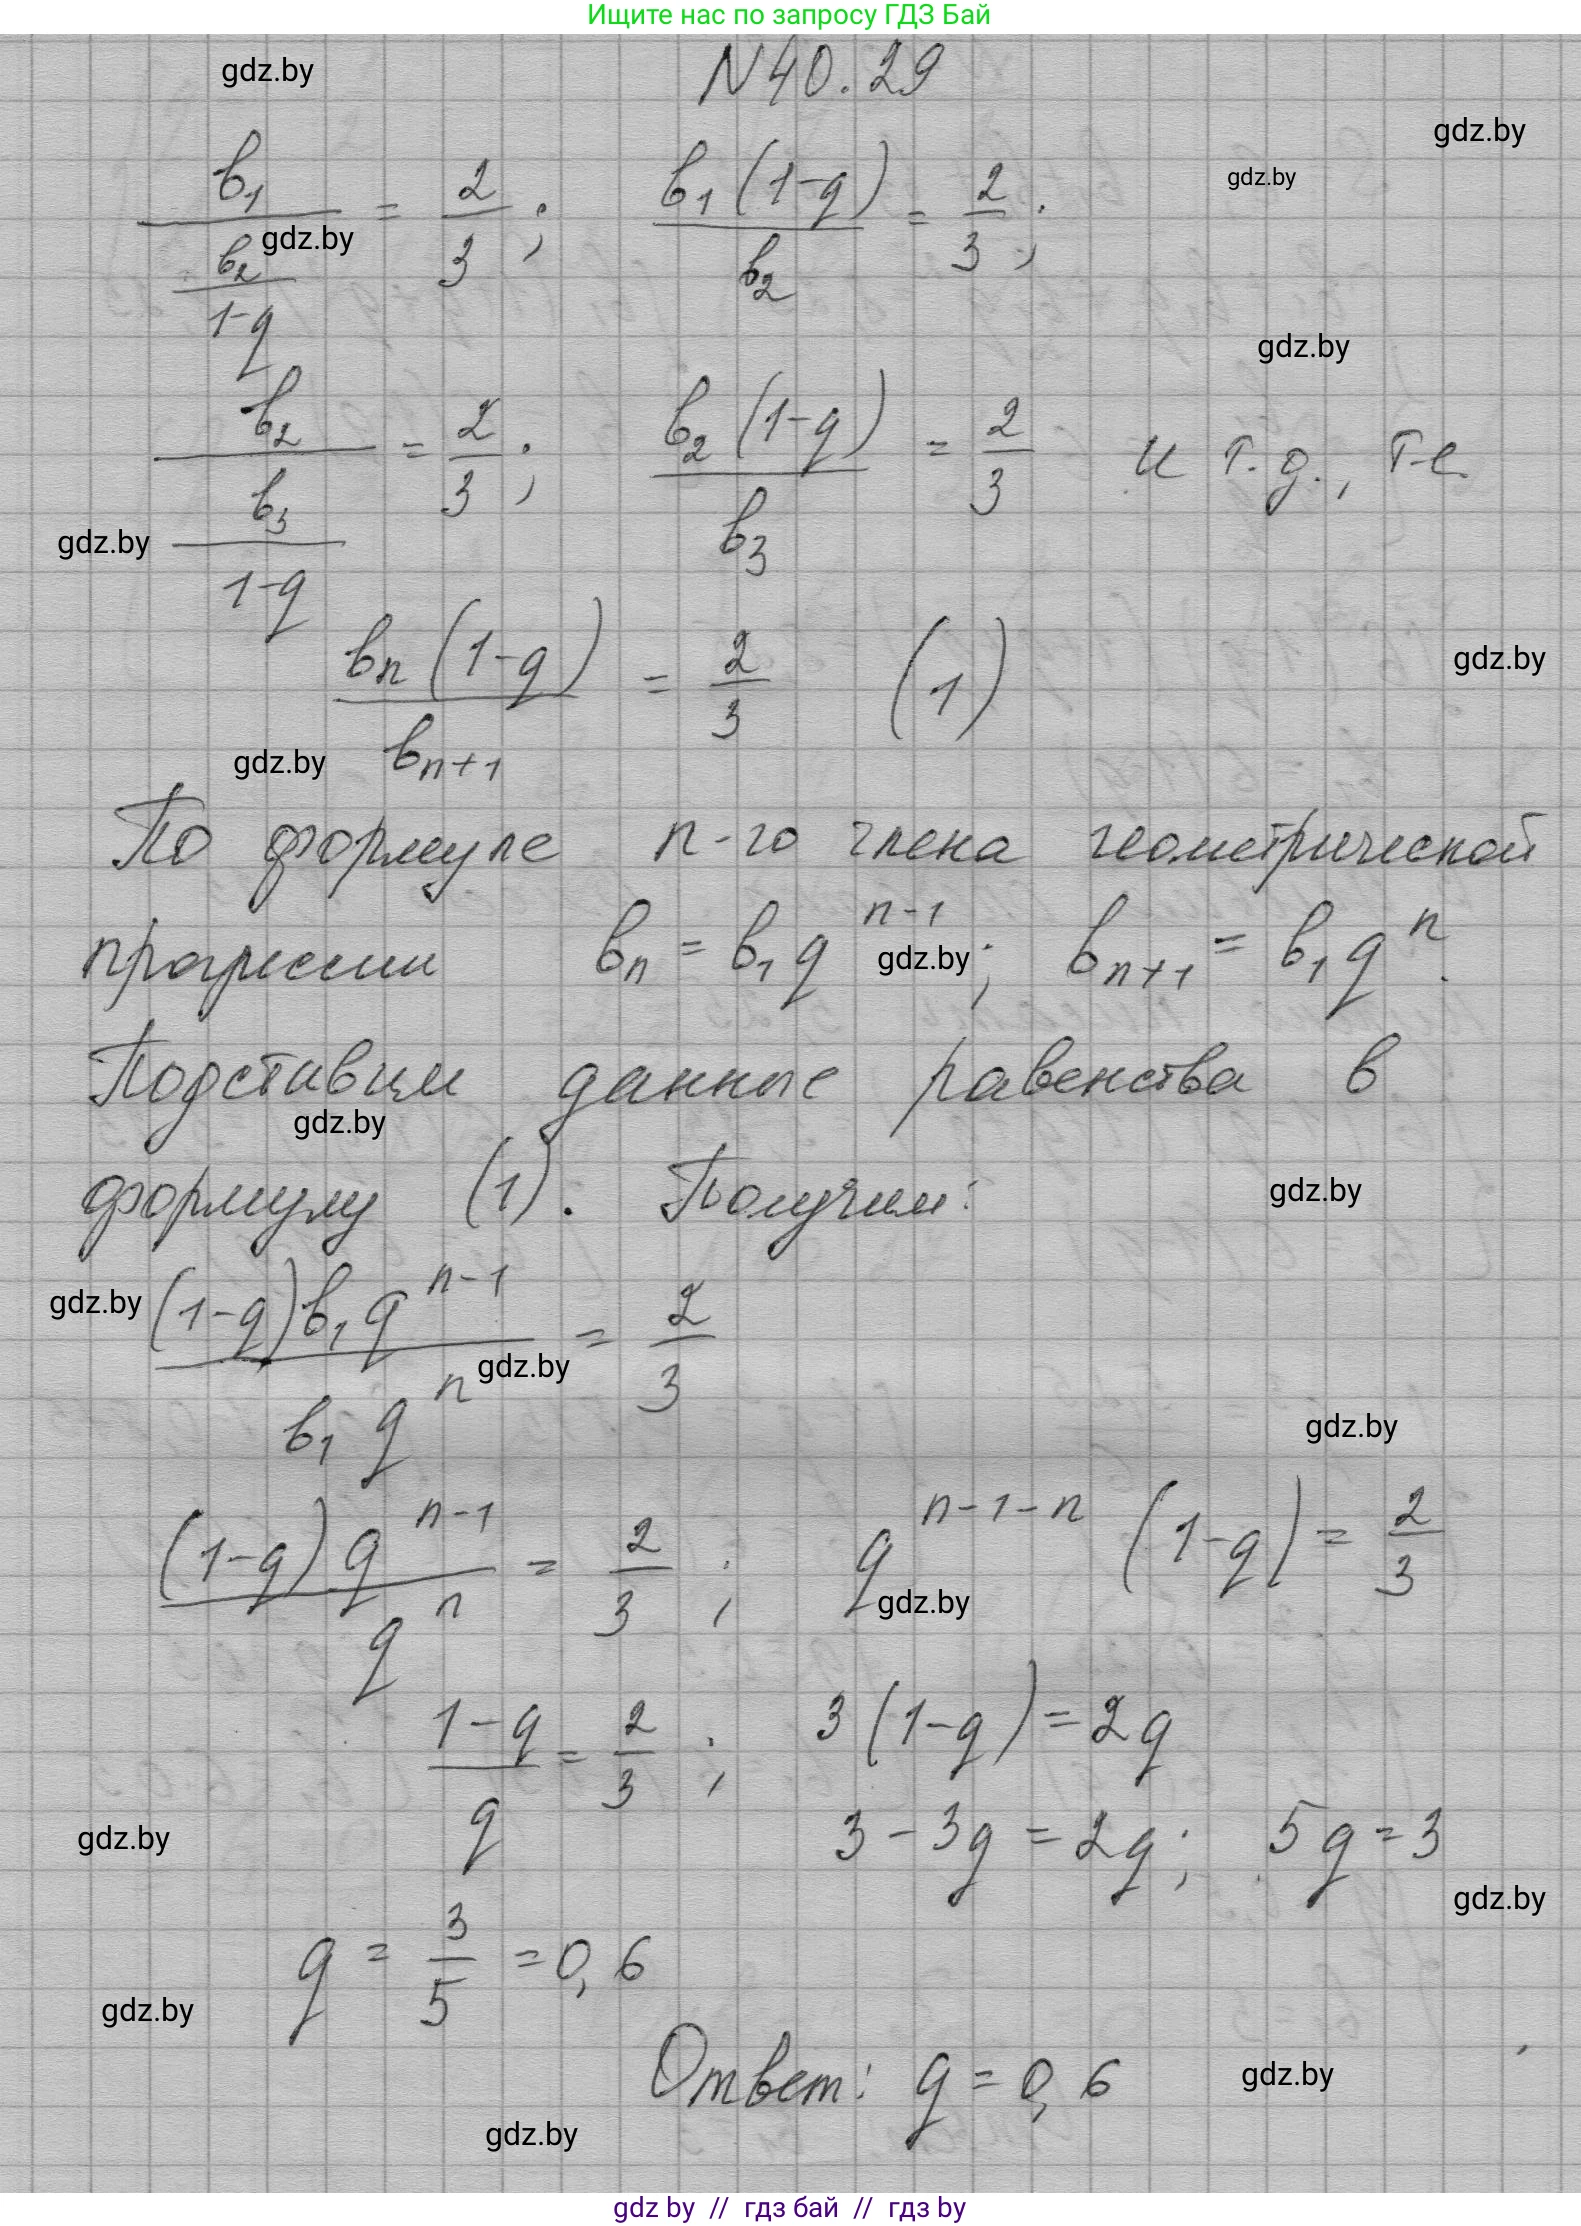 Ищите нас по запросу ГДЗ Бай
N40.29
gdz.by
gdz.by
gdz.by
b₁ / (b₂ / (1-q)) = 2/3; b₁(1-q) / b₂ = 2/3;
gdz.by
gdz.by
b₂ / (b₃ / (1-q)) = 2/3; b₂(1-q) / b₃ = 2/3 и т.д., т-е.
gdz.by
bₙ(1-q) / bₙ₊₁ = 2/3 (1)
gdz.by
gdz.by
По формуле n-го члена геометрической
прогрессии bₙ = b₁qⁿ⁻¹; bₙ₊₁ = b₁qⁿ.
gdz.by
Подставим данные равенства в
gdz.by
формулу (1). Получим:
gdz.by
gdz.by
(1-q)b₁qⁿ⁻¹ / b₁qⁿ = 2/3
gdz.by
gdz.by
(1-q)qⁿ⁻¹ / qⁿ = 2/3; qⁿ⁻¹⁻ⁿ (1-q) = 2/3
gdz.by
(1-q) / q = 2/3; 3(1-q) = 2q
3-3q = 2q; 5q = 3
gdz.by
gdz.by
q = 3/5 = 0,6
gdz.by
Ответ: q = 0,6
gdz.by
gdz.by
gdz by // гдз бай // гдз by